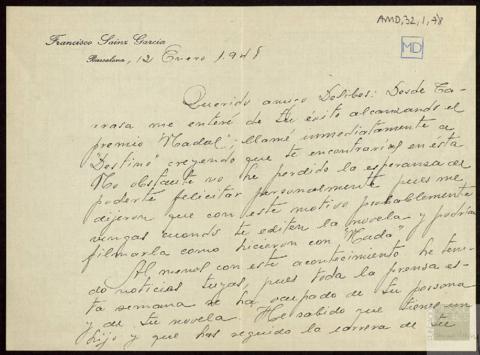 AMD,32,1,48
MD
Francisco Sáinz García
Barcelona, 12 Enero 1948
Querido amigo Delibes: Desde Ta-
rrasa me enteré de tu éxito alcanzando el
premio "Nadal"; llamé inmediatamente a
"Destino" creyendo que te encontrarías en esta
No obstante no he perdido la esperanza de
poderte felicitar personalmente pues me
dijeron que con este motivo probablemente
vengas cuando te editen la novela y podrían
filmarla como hicieron con "Nada".
Al menos con este acontecimiento he teni-
do noticias tuyas, pues toda la prensa es-
ta semana se ha ocupado de tu persona
y de tu novela. He sabido que tienes un
hijo y que has seguido la carrera de tu